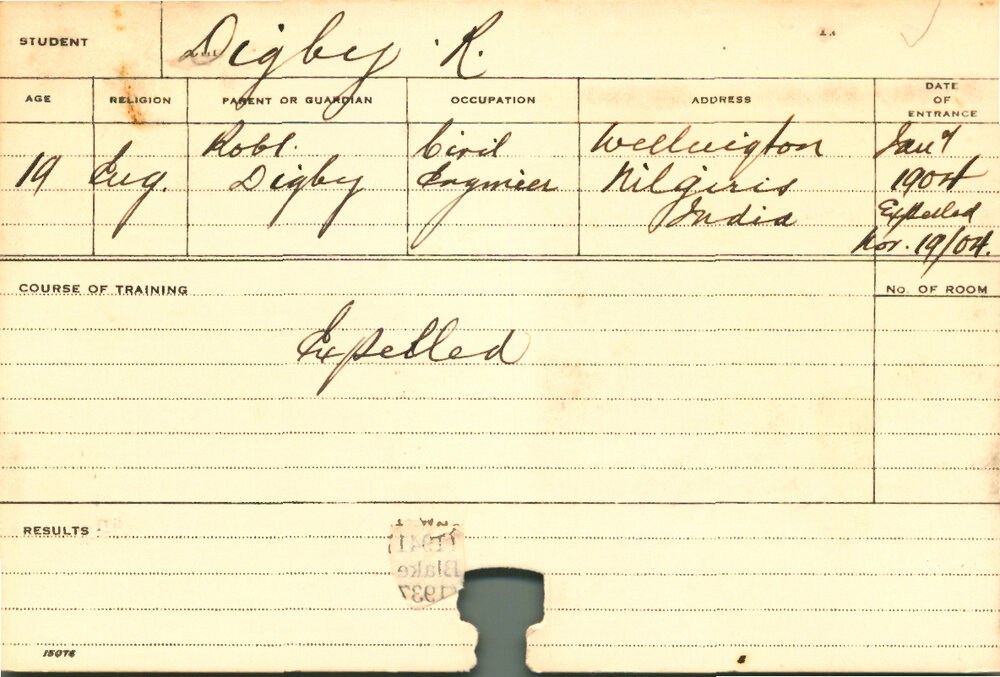 STUDENT Digby R.
AGE RELIGION PARENT OR GUARDIAN OCCUPATION ADDRESS DATE OF ENTRANCE
19 Eng. Robt. Digby Civil Engineer Wellington Nilgiris India Jany 1904 Expelled Nov. 19/04.
COURSE OF TRAINING No. OF ROOM
Expelled
RESULTS
(1941)
Blake
(1937
15076